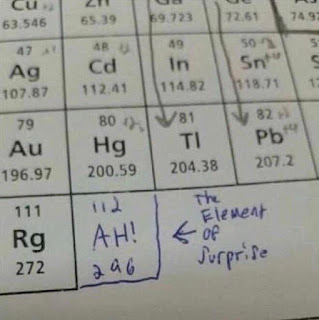 Cu Zn Ga Ge As
63.546 65.39 69.723 72.61 74.92
47 48 49 50
Ag Cd In Sn
107.87 112.41 114.82 118.71
79 80 81 82
Au Hg Tl Pb
196.97 200.59 204.38 207.2
111 112
Rg AH!
272 296
The
Element
OF
Surprise